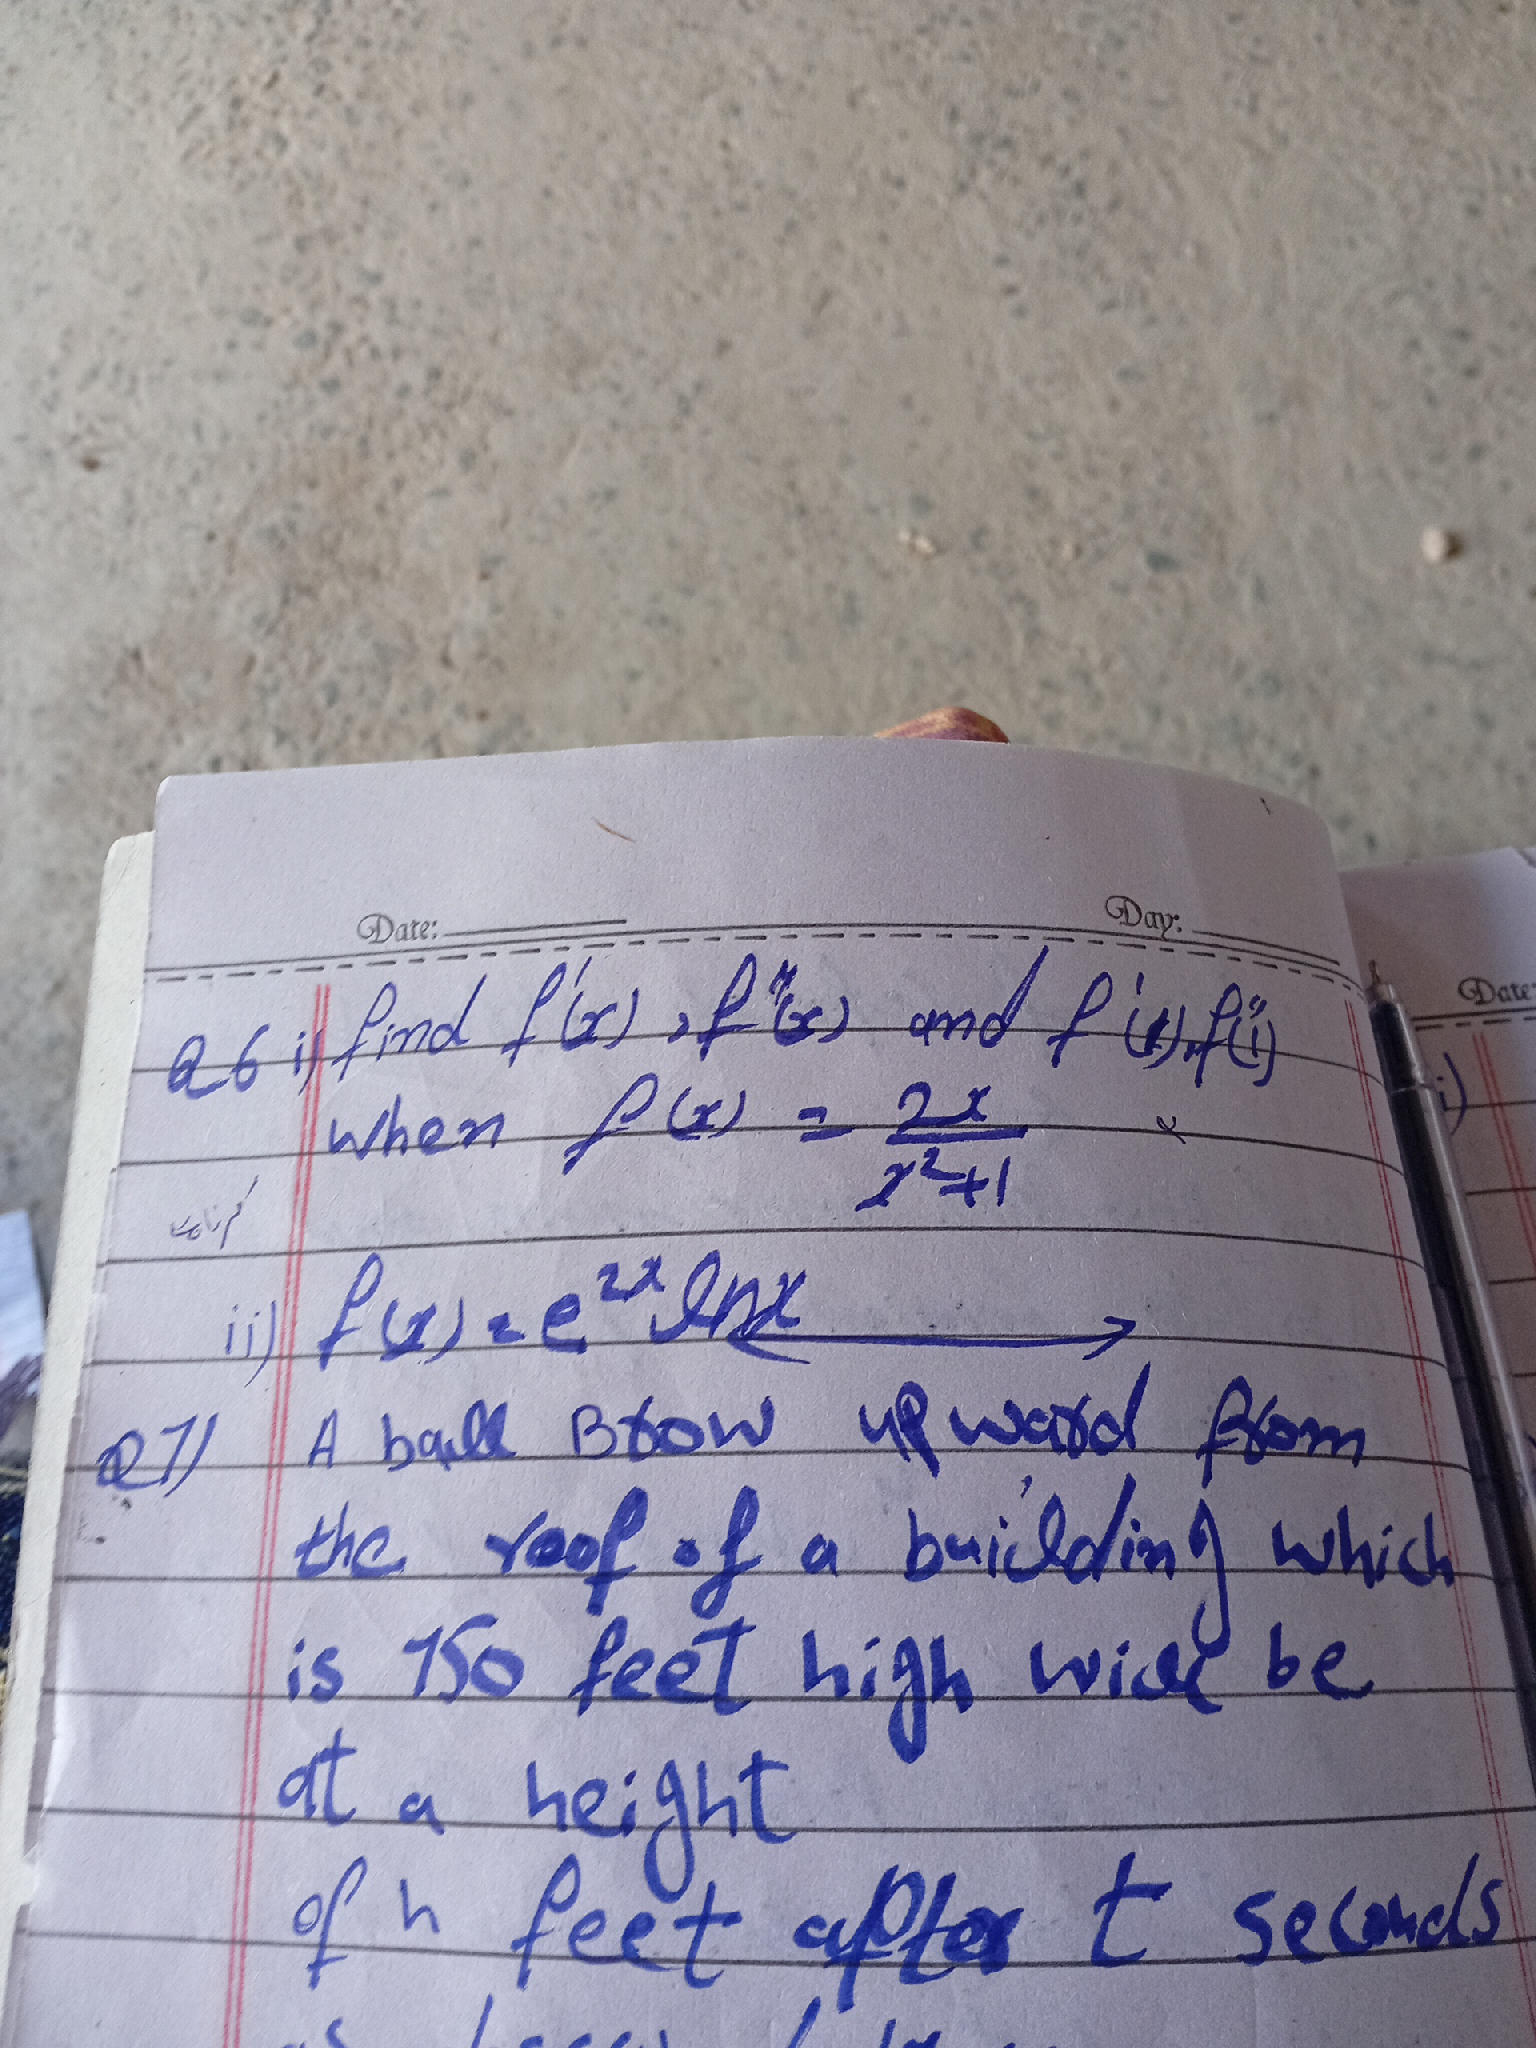 Date: Day:
Q6 i) find f'(x), f"(x) and f'(1), f"(1)
when f(x) = 2x / x²+1
ii) f(x) = e^2x lnx
Q7) A ball Brow upward from
the roof of a building which
is 750 feet high will be
at a height
of h feet after t seconds
Date:
i)